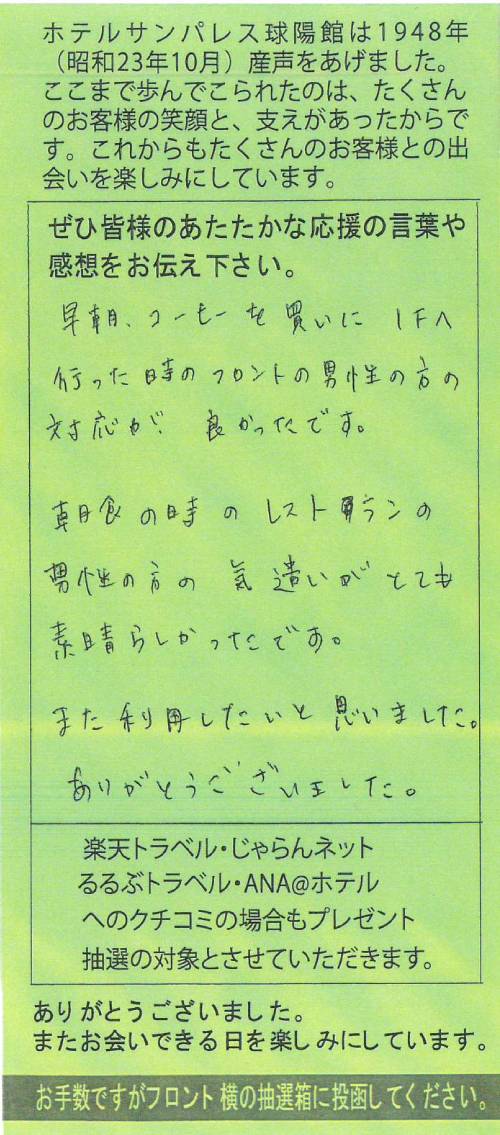 ホテルサンパレス球陽館は1948年
（昭和23年10月）産声をあげました。
ここまで歩んでこられたのは、たくさん
のお客様の笑顔と、支えがあったからで
す。これからもたくさんのお客様との出
会いを楽しみにしています。
ぜひ皆様のあたたかな応援の言葉や
感想をお伝え下さい。
早朝、コーヒーを買いに 1Fへ
行った時のフロントの男性の方の
対応が、良かったです。
朝食の時のレストランの
男性の方の気遣いがとても
素晴らしかったです。
また利用したいと思いました。
ありがとうございました。
楽天トラベル・じゃらんネット
るるぶトラベル・ANA@ホテル
へのクチコミの場合もプレゼント
抽選の対象とさせていただきます。
ありがとうございました。
またお会いできる日を楽しみにしています。
お手数ですがフロント横の抽選箱に投函してください。